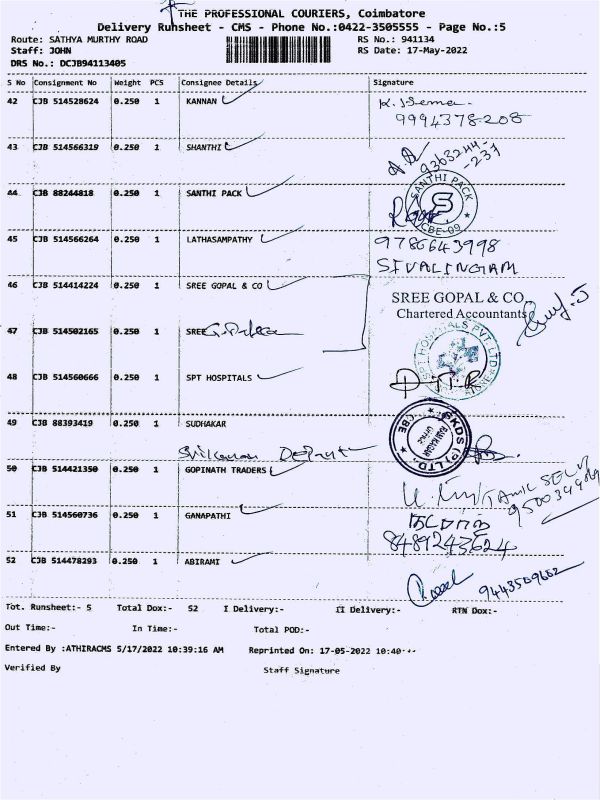 THE PROFESSIONAL COURIERS, Coimbatore
Delivery Runsheet - CMS - Phone No.:0422-3505555 - Page No.:5
Route: SATHYA MURTHY ROAD RS No.: 941134
Staff: JOHN RS Date: 17-May-2022
DRS No.: DCJB94113405
S No Consignment No Weight PCS Consignee Details Signature
42 CJB 514528624 0.250 1 KANNAN
9994378208
43 CJB 514566319 0.250 1 SHANTHI
9363244-
-237
44 CJB 88244818 0.250 1 SANTHI PACK
SANTHI PACK
S
CBE-09
45 CJB 514566264 0.250 1 LATHASAMPATHY
9786643998
SIVALINGAM
46 CJB 514414224 0.250 1 SREE GOPAL & CO
SREE GOPAL & CO
Chartered Accountants
47 CJB 514502165 0.250 1 SREE
SPT HOSPITALS PVT. LTD
48 CJB 514560666 0.250 1 SPT HOSPITALS
49 CJB 88393419 0.250 1 SUDHAKAR
SKDS (P) LTD.
CBE
RAM NAGAR
OFFICE
50 CJB 514421350 0.250 1 GOPINATH TRADERS
TAMIL SELVI
51 CJB 514560736 0.250 1 GANAPATHI
8489243624
52 CJB 514478293 0.250 1 ABIRAMI
9443509662
Tot. Runsheet:- 5 Total Dox:- 52 I Delivery:- II Delivery:- RTN Dox:-
Out Time:- In Time:- Total POD:-
Entered By :ATHIRACMS 5/17/2022 10:39:16 AM Reprinted On: 17-05-2022 10:40
Verified By Staff Signature